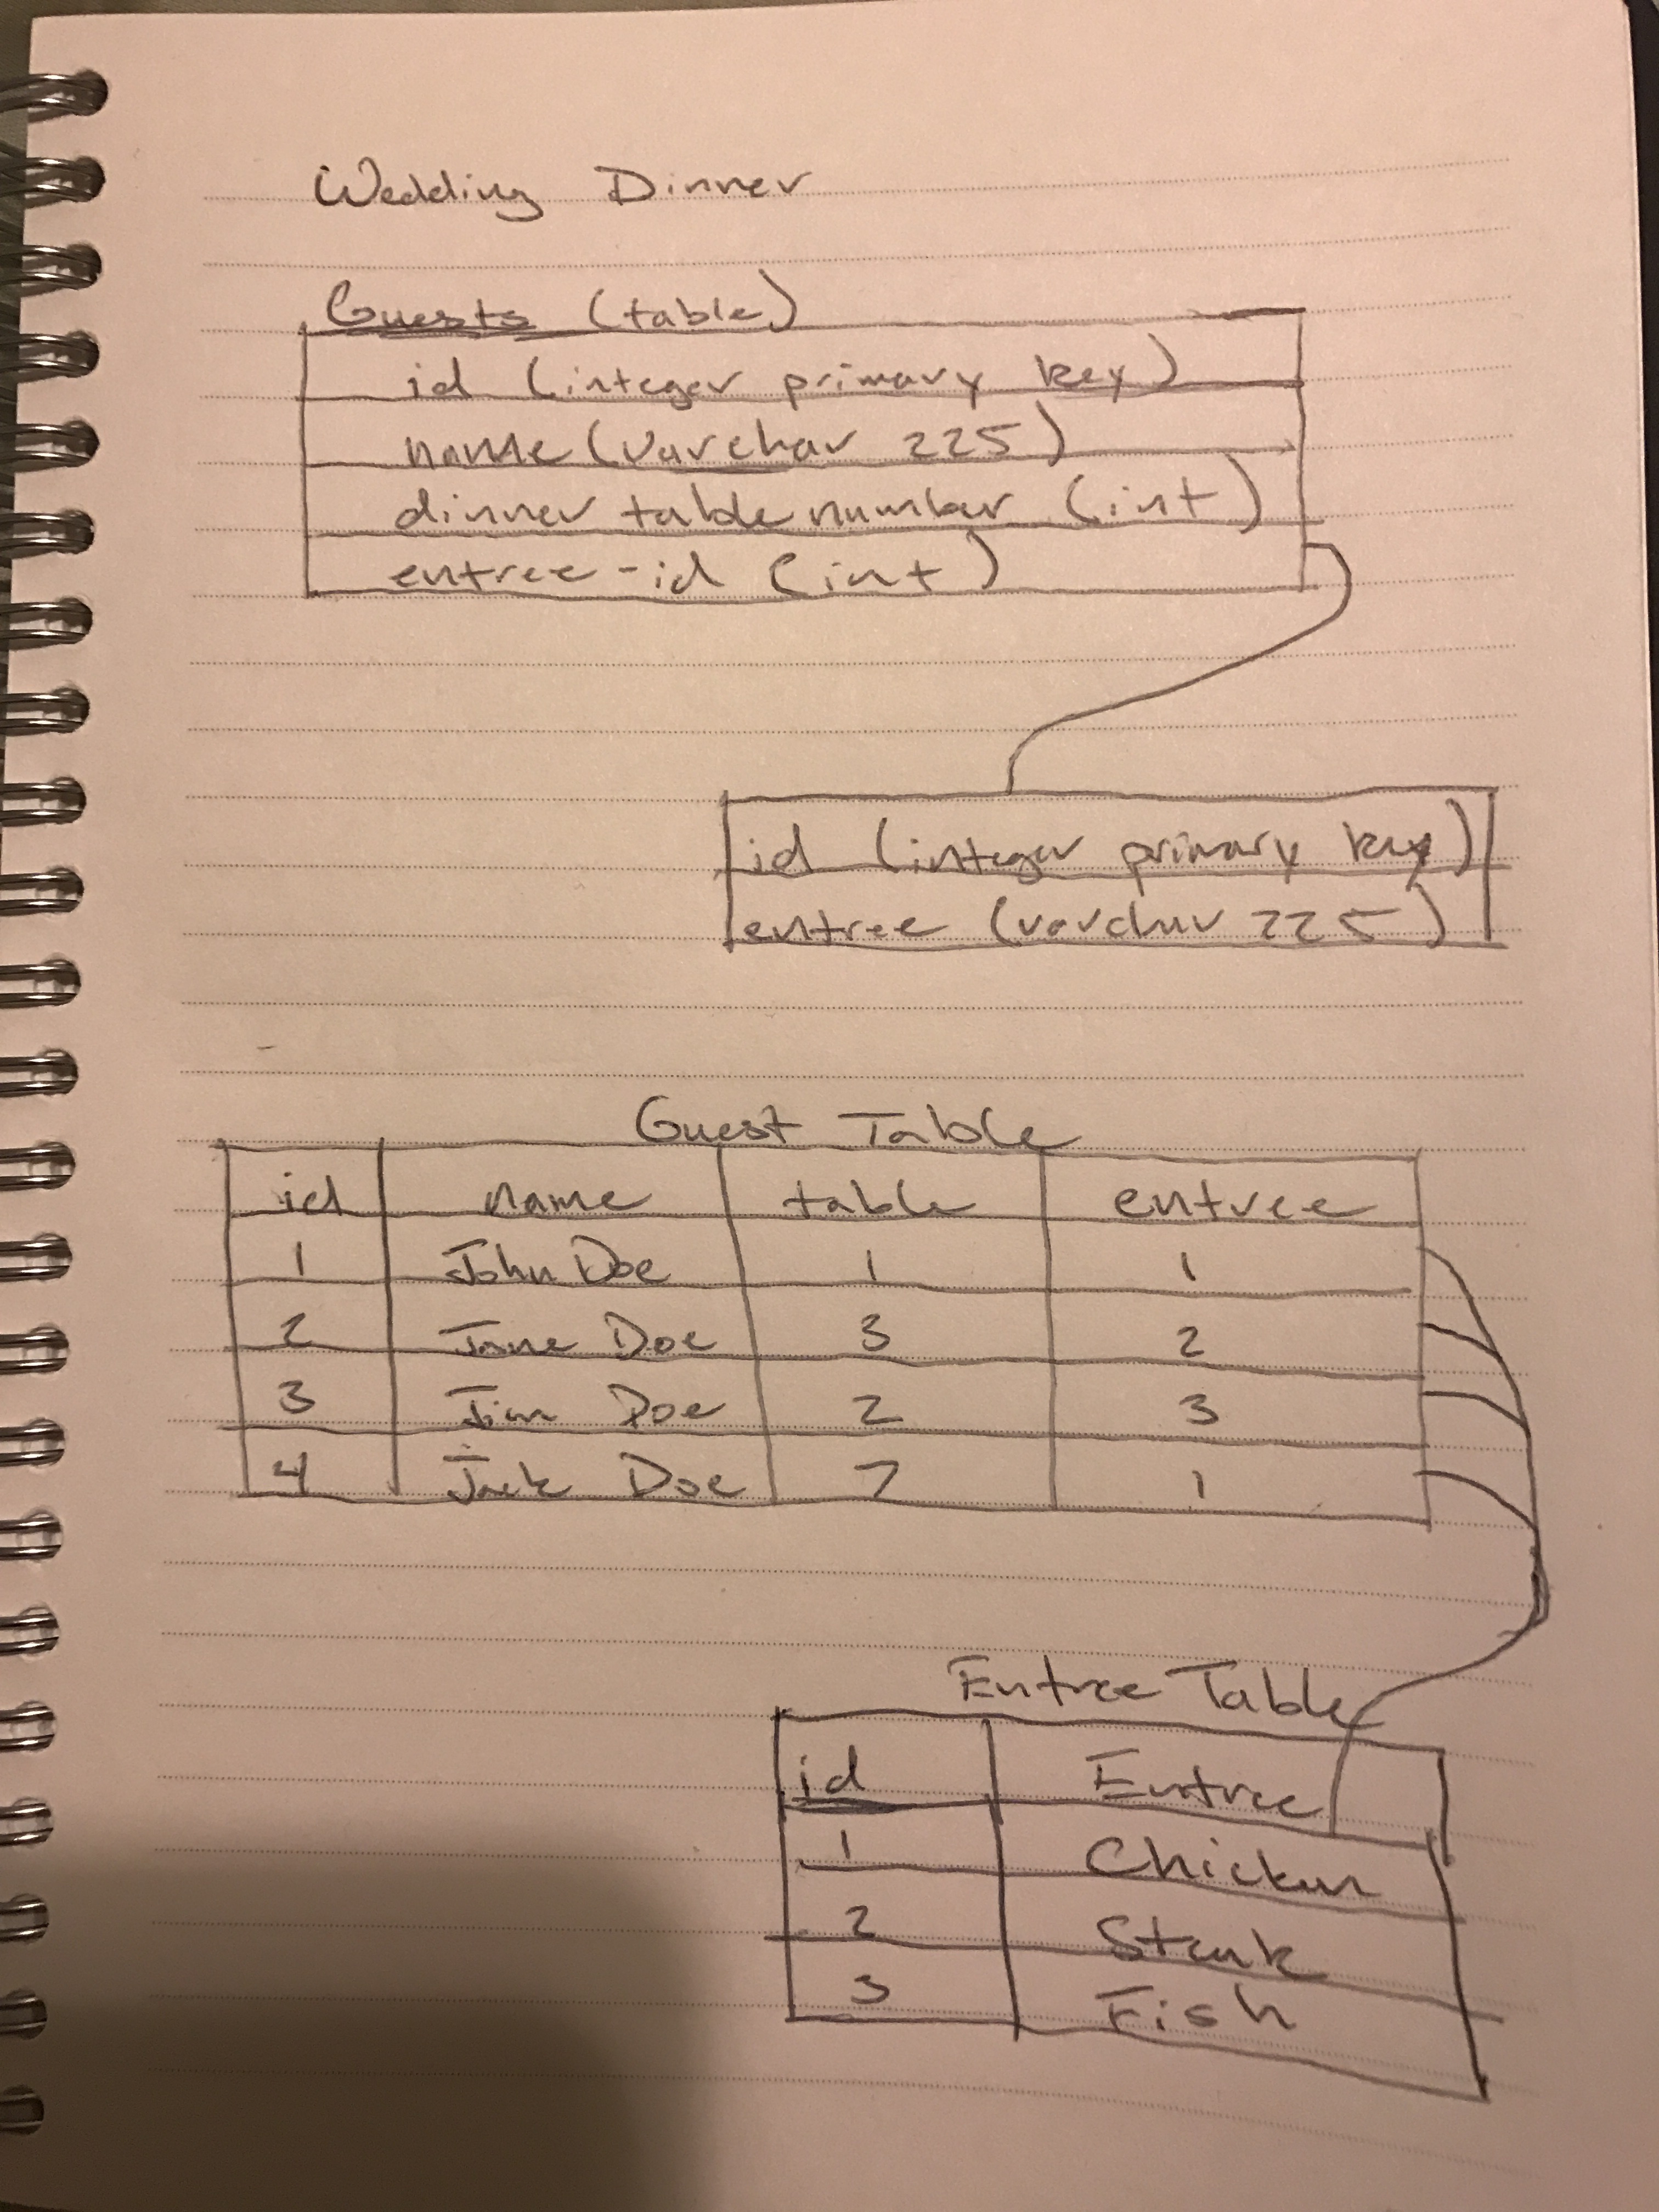 Wedding Dinner
Guests (table)
id (integer primary key)
name (varchar 225)
dinner table number (int)
entree-id (int)
id (integer primary key)
entree (varchar 225)
Guest Table
id name table entree
1 John Doe 1 1
2 Jane Doe 3 2
3 Jim Doe 2 3
4 Jack Doe 7 1
Entree Table
id Entree
1 Chicken
2 Steak
3 Fish